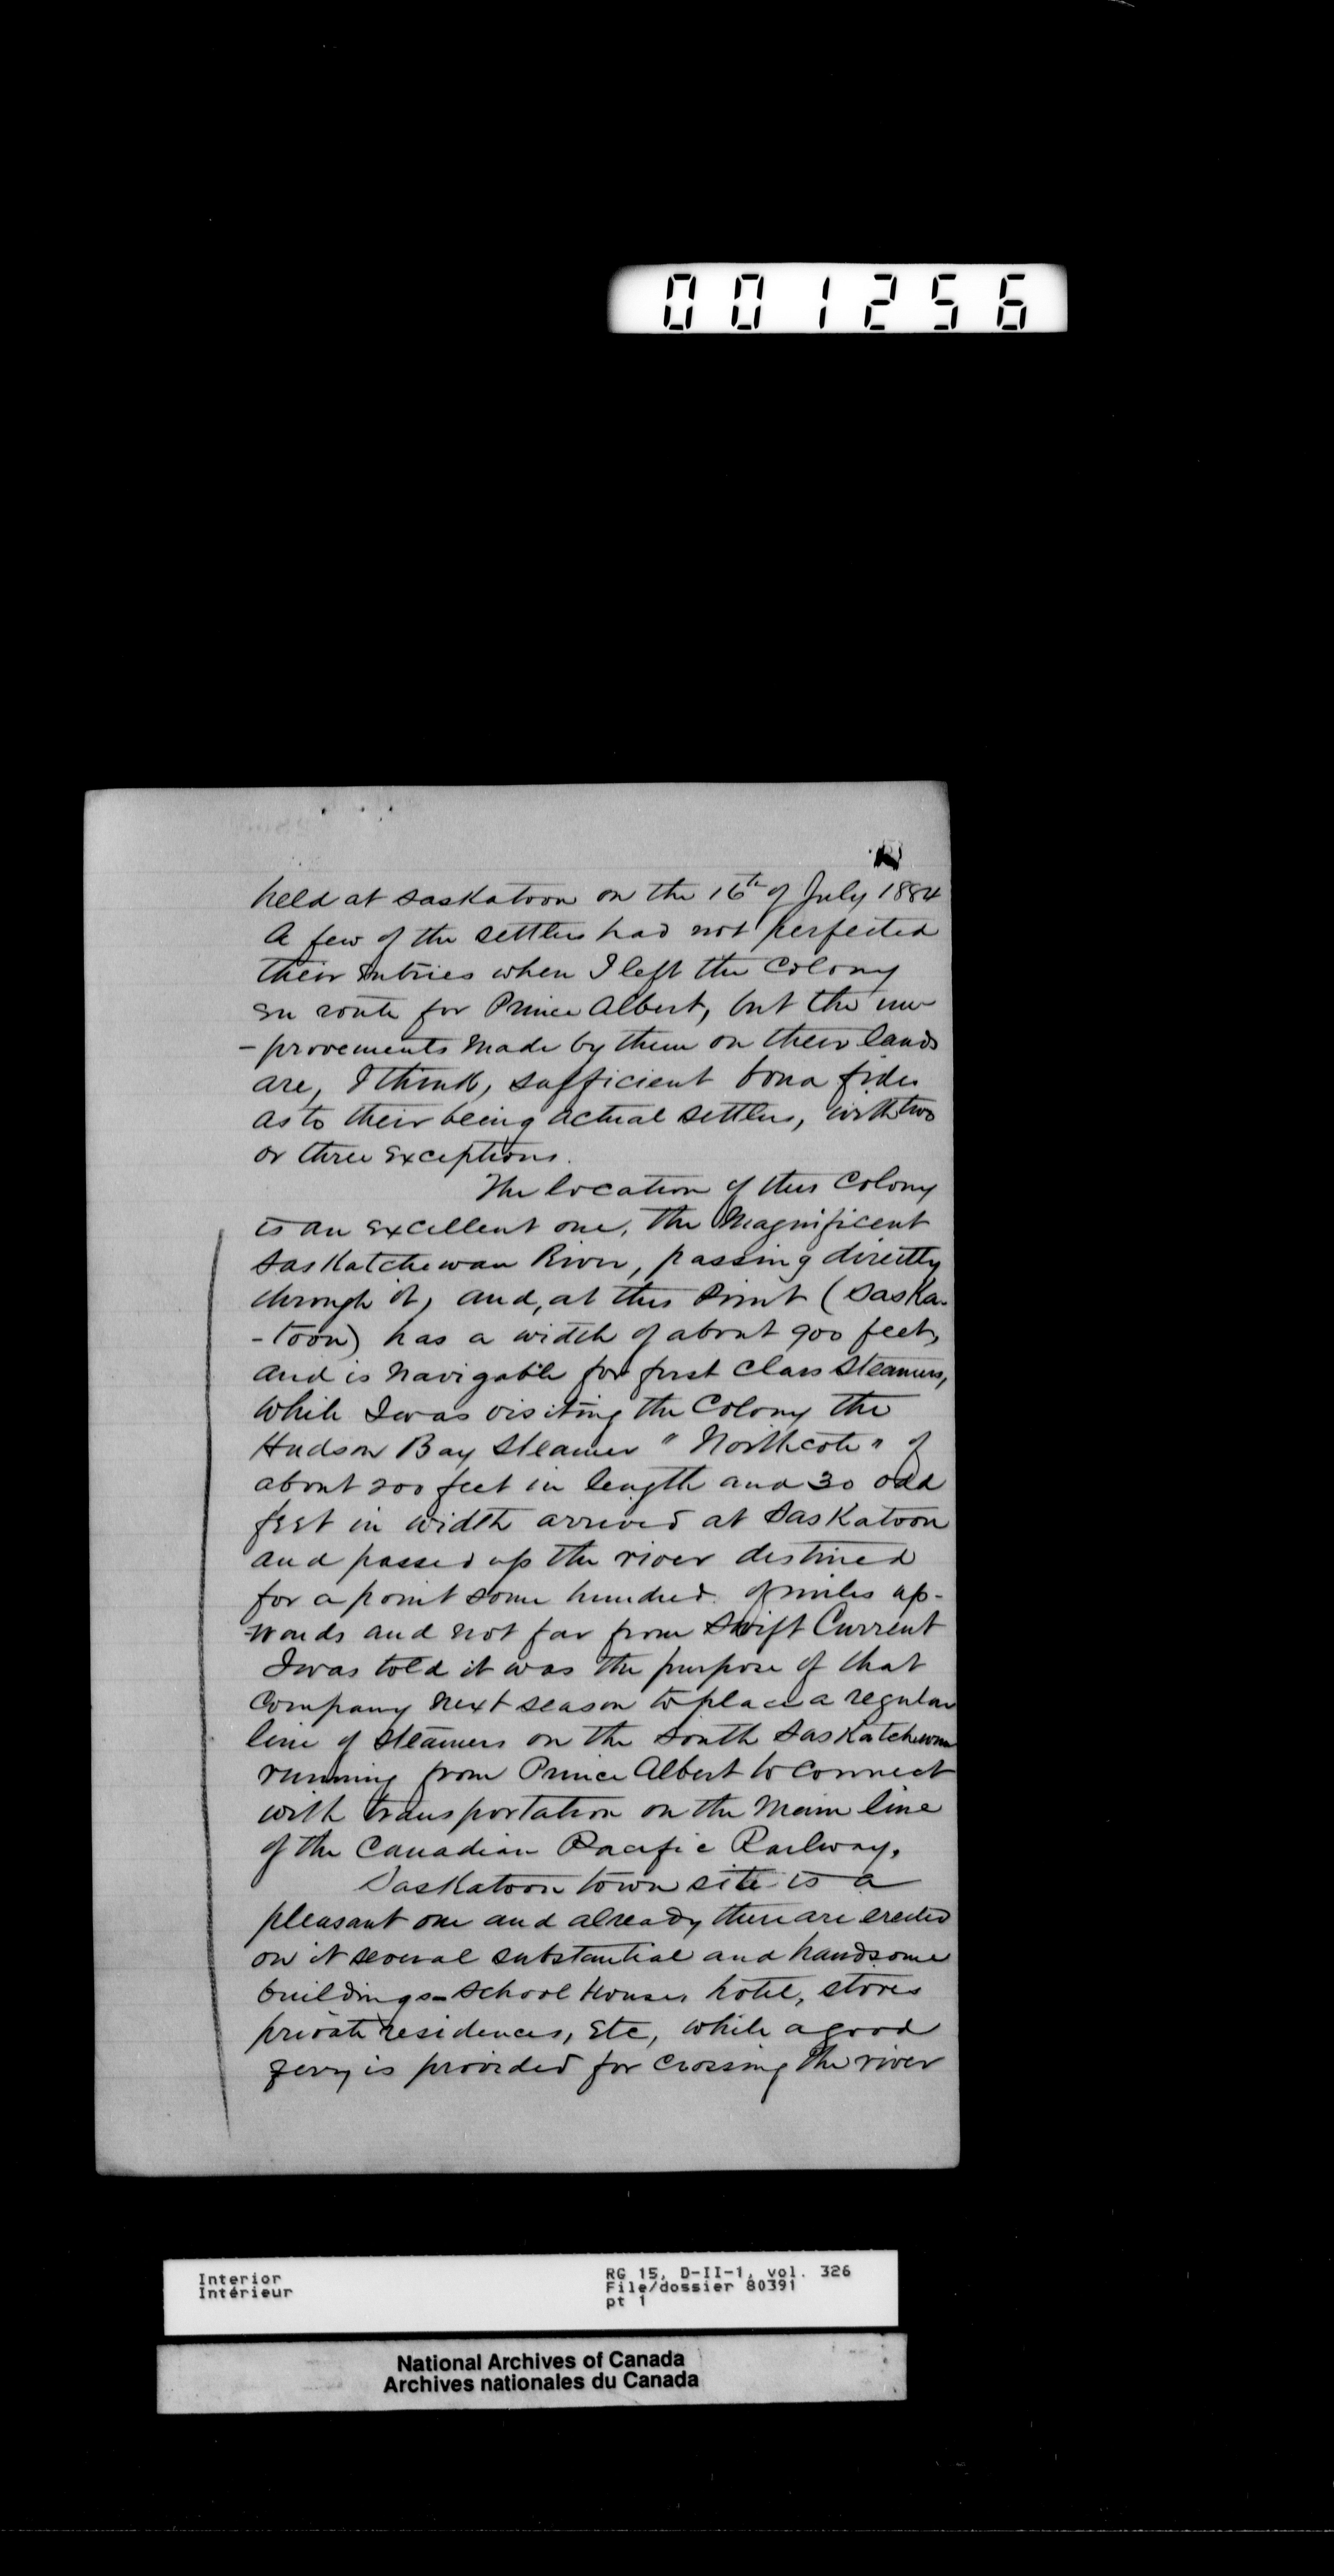 001256
held at Saskatoon on the 16th of July 1884
A few of the settlers had not perfected
their entries when I left the Colony
en route for Prince Albert, but the im
-provements made by them on their lands
are, I think, sufficient bona fides
as to their being actual settlers, with two
or three exceptions.
The location of this Colony
is an excellent one, the magnificent
Saskatchewan River, passing directly
through it, and, at this point (Saska-
-toon) has a width of about 900 feet,
and is navigable for first class steamers,
While I was visiting the Colony the
Hudson Bay Steamer "Northcote" of
about 200 feet in length and 30 odd
feet in width arrived at Saskatoon
and passed up the river destined
for a point some hundred of miles up-
-wards and not far from Swift Current
I was told it was the purpose of that
Company next season to place a regular
line of steamers on the South Saskatchewan
running from Prince Albert to connect
with transportation on the Main line
of the Canadian Pacific Railway.
Saskatoon town site is a
pleasant one and already there are erected
on it several substantial and handsome
buildings - School Houses hotel, stores
private residences, etc, while a good
ferry is provided for crossing the river
Interior
Intérieur
RG 15, D-II-1, vol. 326
File/dossier 80391
pt 1
National Archives of Canada
Archives nationales du Canada